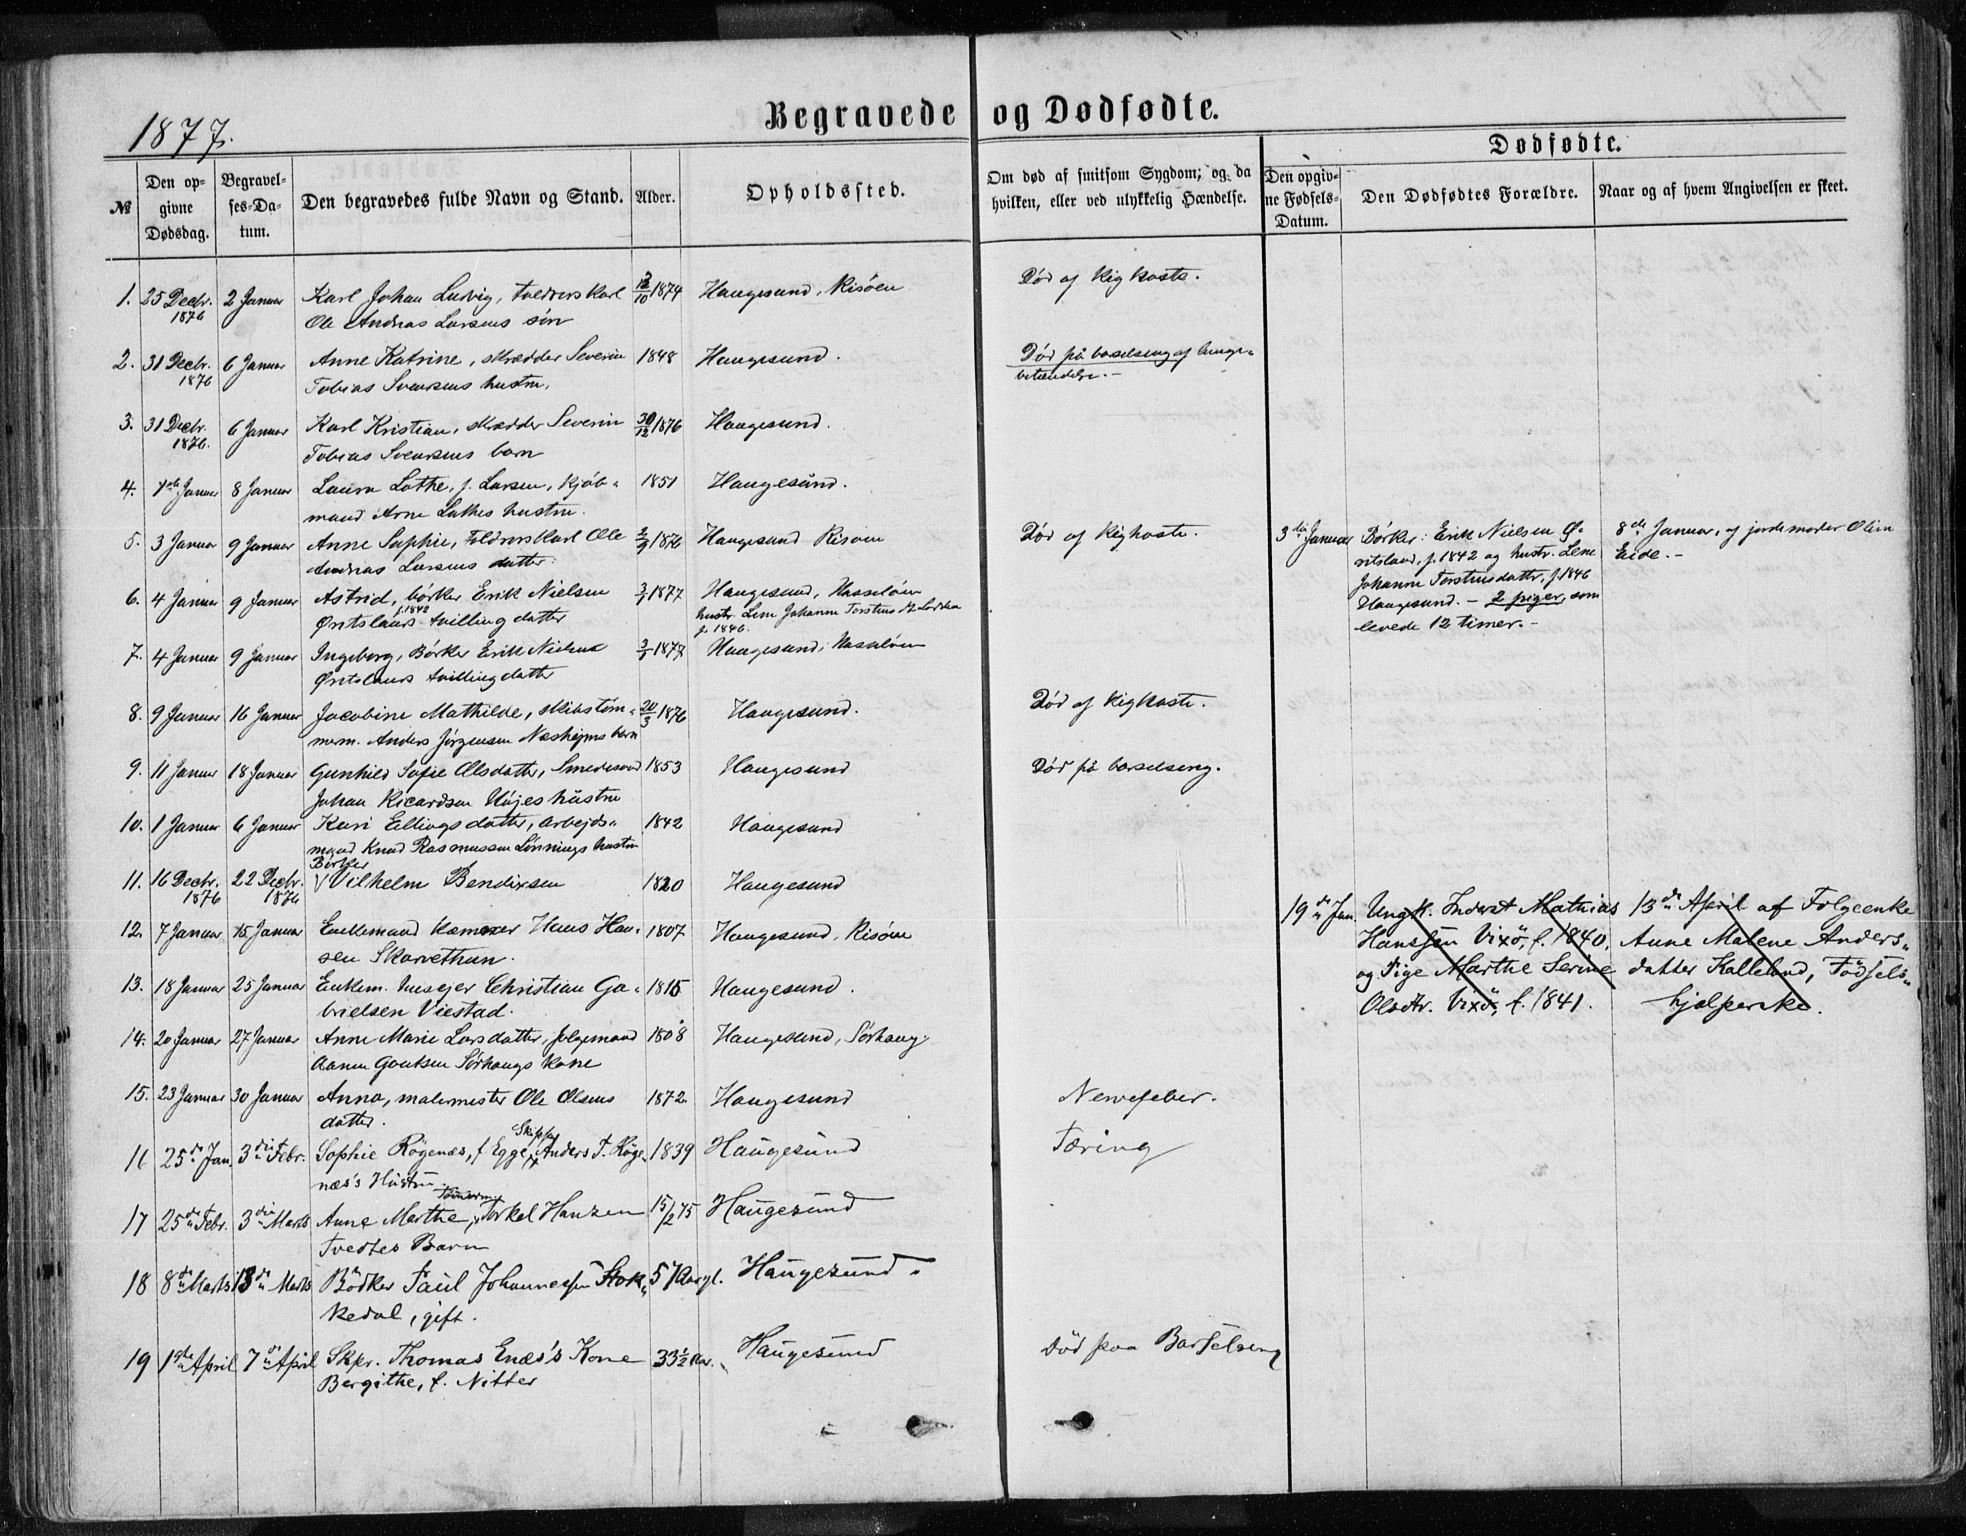 1877.
Begravede og Dødfødte.
Dødfødte.
№
Den opgivne Dødsdag.
Begravelses-Datum.
Den begravedes fulde Navn og Stand.
Alder.
Opholdssted.
Om død af smitsom Sygdom; og da hvilken, eller ved ulykkelig Hændelse.
Den opgivne Fødsels-Datum.
Den Dødfødtes Forældre.
Naar og af hvem Angivelsen er skeet.
1. 25 Decbr. 2 Januar Karl Johan Ludvig, 12/10 1874 Haugesund, Risøen Død af Kighoste.
1876 Ole Andreas Larsens søn
2. 31 Decbr. 6 Januar Anne Katrine, skrædder Severin 1848 Haugesund. Død på barselseng af lunge-
1876 Tobias Sivertsens hustru. betændelse.-
3. 31 Decbr. 6 Januar Karl Kristian, skrædder Severin 30/12 1876 Haugesund.
1876. Tobias Sivertsens barn
4. 1ste Januar 8 Januar Laura Lothe, f. Larsen, kjøb- 1851 Haugesund.
mand Arne Lothes hustru.
5. 3 Januar 9 Januar Anne Sophie, Ole 2/9 1876 Haugesund Risøen Død af Kighoste.
Andreas Larsens datter.
6. 4 Januar 9 Januar Astrid, bøtker Erik Nielsen 3/1 1877 Haugesund, Hasseløen
f. 1842 hustr. Lene Johanne
tvillingdatter f. 1846.
7. 4 Januar 9 Januar Ingeborg, Bøtker Erik Nielsen 3/1 1877 Haugesund, Hasseløen
tvillingdatter
3die Januar Bøtker: Erik Nielsen Ø-
f. 1842 og hustr. Lene
Johanne Torstensdatter, f. 1846
Haugesund. - 2 piger, som
levede 12 timer.-
8de Januar, af jordemoder Olin
Eide.-
8. 9 Januar 16 Januar Jacobine Mathilde, skibstøm- 20/3 1876 Haugesund. Død af Kighoste.
merm. Anders Jørgensen Næshejms barn
9. 11 Januar 18 Januar Gunhild Sofie Olsdatter, Smedesvend 1853 Haugesund Død på barselseng.
Johan Ricardsen Højes hustru
10. 1 Januar 6 Januar Kari Ellingsdatter, arbejds- 1842 Haugesund
mand Knud Rasmussen Lønnings hustru
Bøtker
11. 16 Decbr. 22 Decbr. Vilhelm Bendixsen 1820 Haugesund
1876 1876
12. 7 Januar 15 Januar Enkemand Hans Han- 1807 Haugesund, Risøen
sen Skarvethun.
13. 18 Januar 25 Januar Enkem. Christian Ga- 1815 Haugesund.
brielsen Viestad.
14. 20 Januar 27 Januar Anne Marie Larsdatter, følgemand 1808 Haugesund, Sørhaug.
Aanen Gautsen Sørhaugs kone
15. 23 Januar 30 Januar Anna, malermester Ole Olsens 1872 Haugesund Nervefeber.
datter.
19de Jan. Ungk. Inderst Mathias
Hanssen Vixø, f. 1840.
og Pige Marthe Serine
Olsdtr. Vixø, f. 1841.
13de April af Følgeenke
Anne Malene Anders-
datter Kalleland, Fødsels-
hjælperske.
Skipper
16 25de Jan. 3die Febr. Sophie Røgenæs, f Egge, Anders T. Røge- 1839 Haugesund Tæring
næs's Hustru
Tømmerm.
17 25de Febr. 3die Marts Anne Marthe, Torkel Hansen 15/2 75 Haugesund
Tvedtes Barn
18 8de Marts 13de Marts Bødker Paul Johannessen Stok- 57 Aar gl. Haugesund.
kedal, gift.
19 1ste April 7de April Skpr. Thomas Enæs's Kone 33½ Aar. Haugesund Død paa Barselseng
Bergithe, f. Nitter